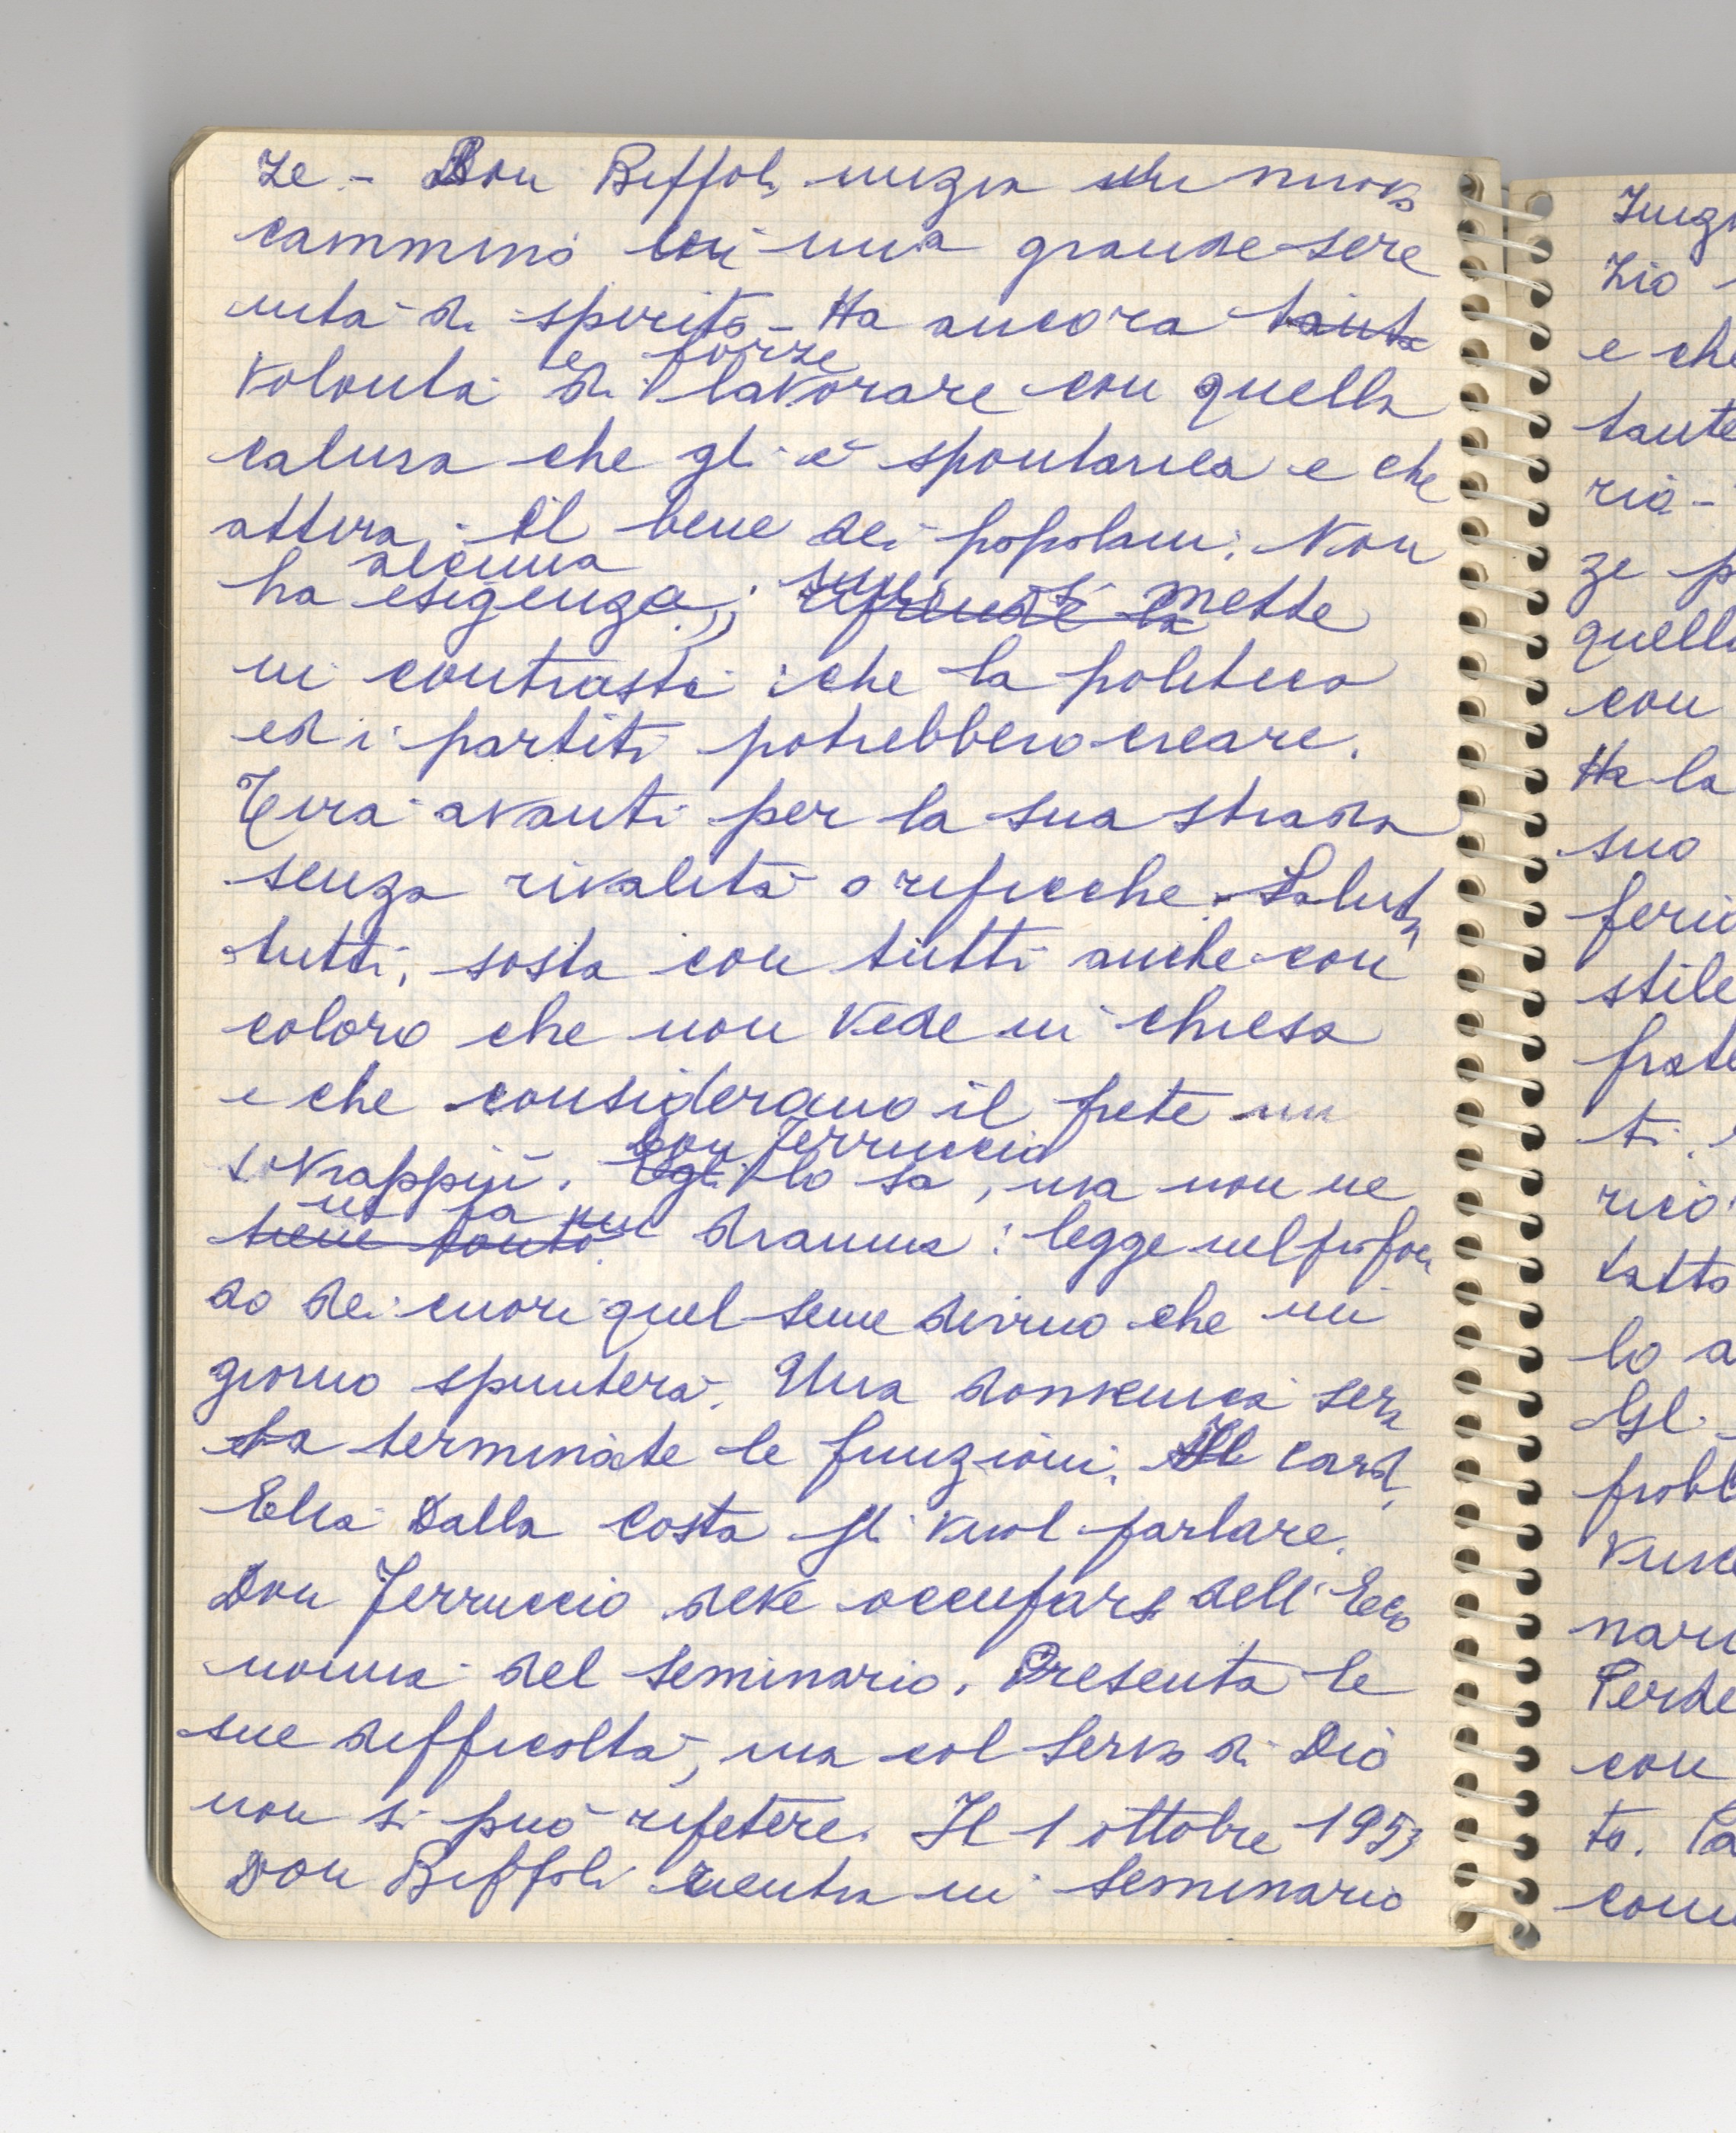 ze - Don Biffoli inizia un nuovo
cammino con una grande sere
nità di spirito - Ha ancora tanta
e forze
volontà di lavorare con quella
calma che gli è spontanea e che
attira il bene dei popolani. Non
alcuna
ha esigenza; non si mette
in contrasti che la politica
ed i partiti potrebbero creare.
Tira avanti per la sua strada
senza rivalità o ripicche. Saluta
tutti, sosta con tutti anche con
coloro che non vede in chiesa
e che considerano il prete un
Don Ferruccio
sovrappiù. Egli lo sa, ma non ne
ne fa un
tiene conto dramma: legge nel profon
do dei cuori quel seme divino che un
giorno spunterà. Una domenica sera
ha terminate le funzioni. Il card.
Elia Dalla Costa gli vuol parlare.
Don Ferruccio deve occuparsi dell'Eco
nomia del seminario. Presenta le
sue difficoltà, ma col Servo di Dio
non si può ripetere. Il 1 ottobre 1953
Don Biffoli rientra in seminario
Zio
e che
tante
rio -
ze p
quella
con
Ha la
suo
stile
frate
ti.
tatto
lo a
Gl
probl
nari
Perde
con
to. Pa